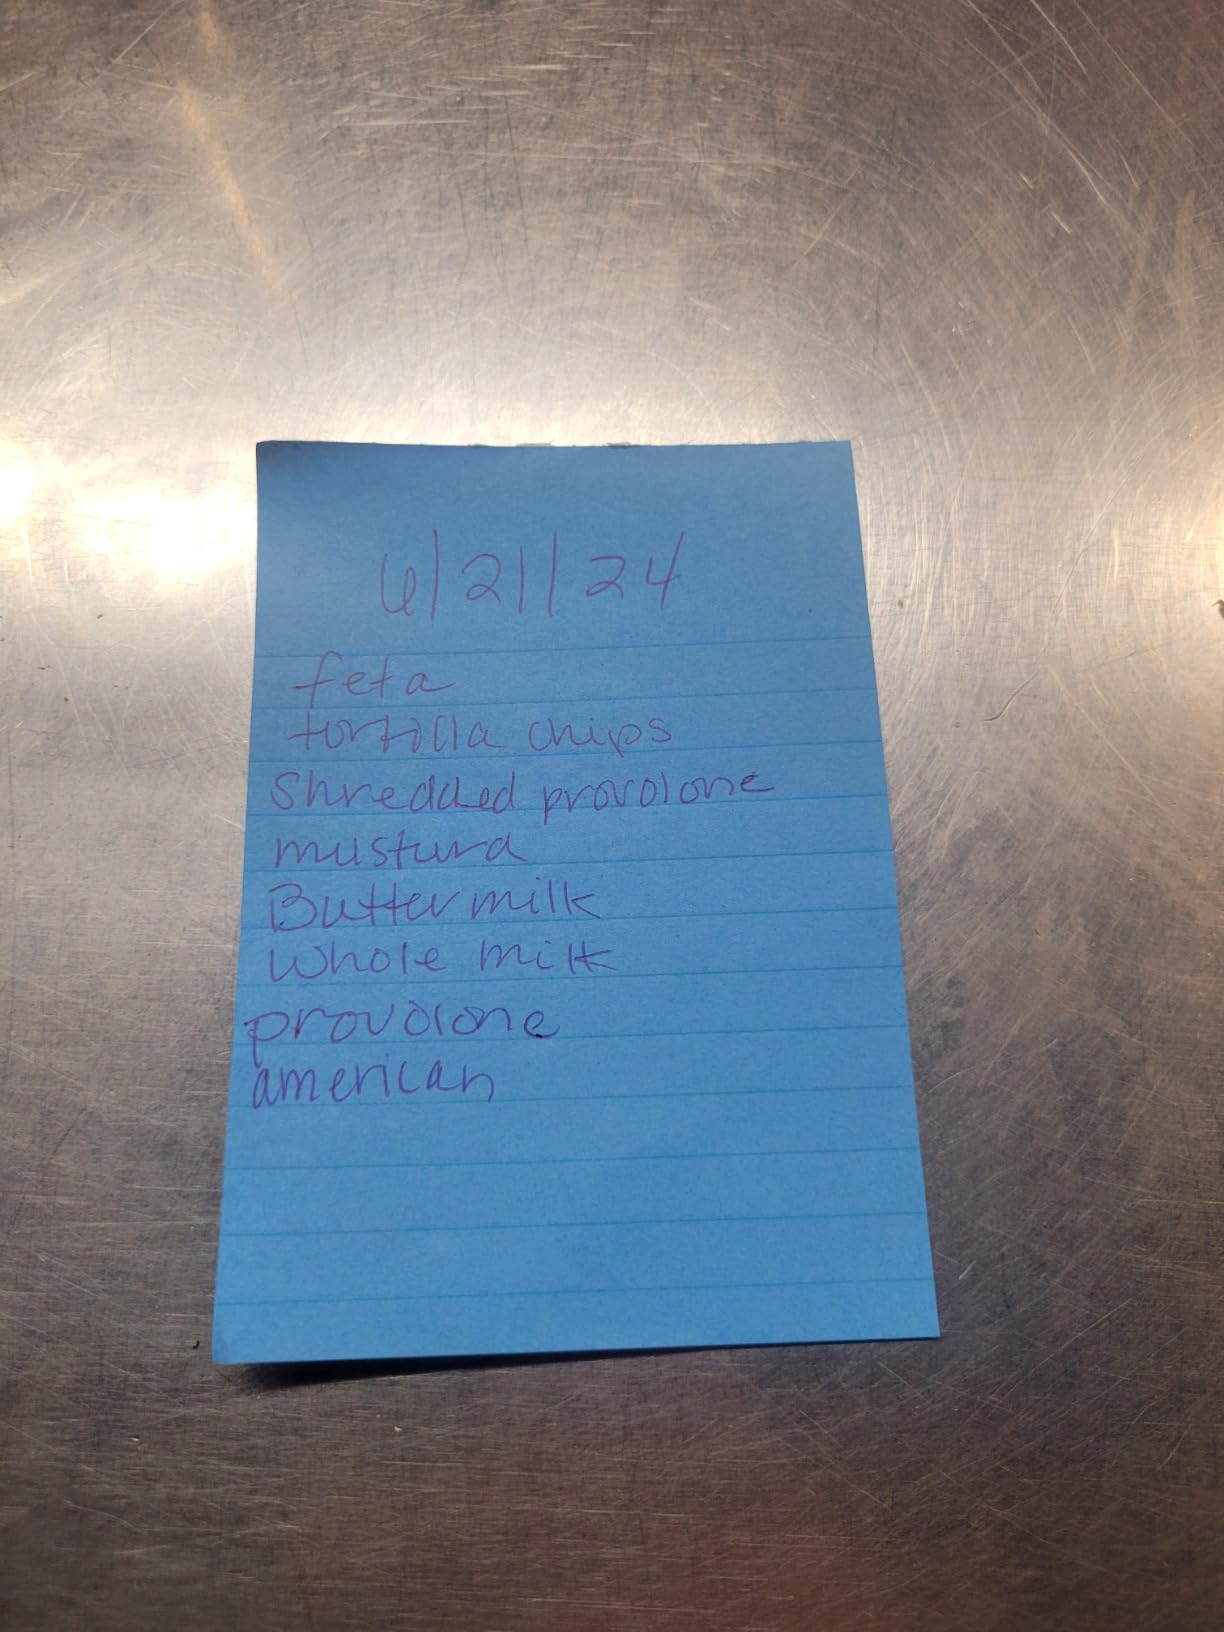 6/21/24
feta
tortilla chips
Shredded provolone
mustard
Buttermilk
Whole milk
provolone
american